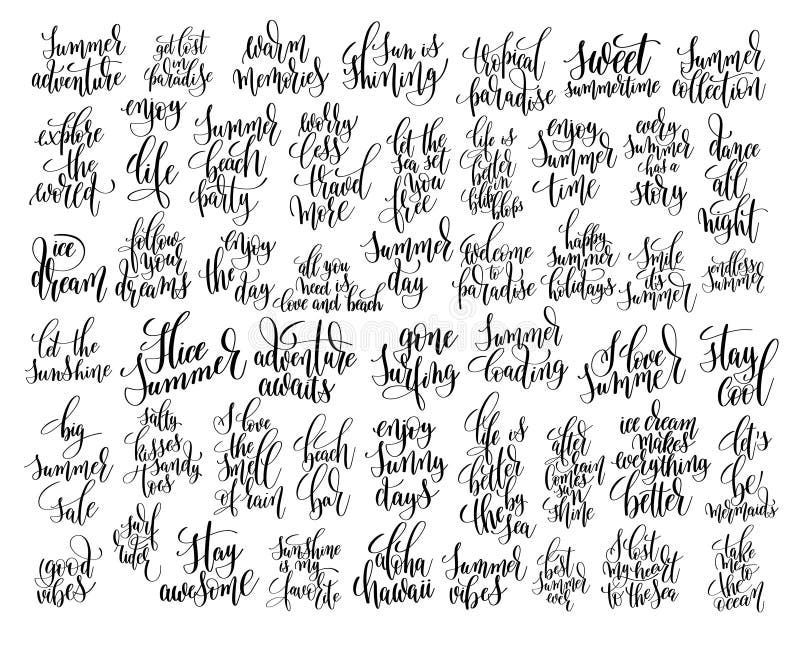 Summer
adventure
get lost
in
paradise
warm
memories
Sun is
shining
tropical
paradise
sweet
summertime
Summer
collection
explore
the
world
enjoy
life
Summer
beach
party
worry
less
travel
more
let the
sea set
you
free
life is
better
in
flip
flops
enjoy
Summer
time
every
summer
has a
story
dance
all
night
ice
dream
follow
your
dreams
enjoy
the
day
all you
need is
love and beach
Summer
day
welcome
to
paradise
happy
summer
holidays
Smile
it's
Summer
endless
summer
let the
sunshine
Hice
Summer
adventure
awaits
gone
Surfing
Summer
loading
I love
Summer
stay
cool
big
summer
sale
salty
kisses
+ sandy
toes
I love
the
smell
of rain
beach
bar
enjoy
sunny
days
life is
better
by
the sea
after
rain
comes
sun
shine
ice cream
makes
everything
better
let's
be
mermaids
good
vibes
surf
rider
Stay
awesome
Sunshine
is my
favorite
aloha
hawaii
Summer
vibes
best
summer
ever
I lost
my heart
to the sea
take
me to
the
ocean